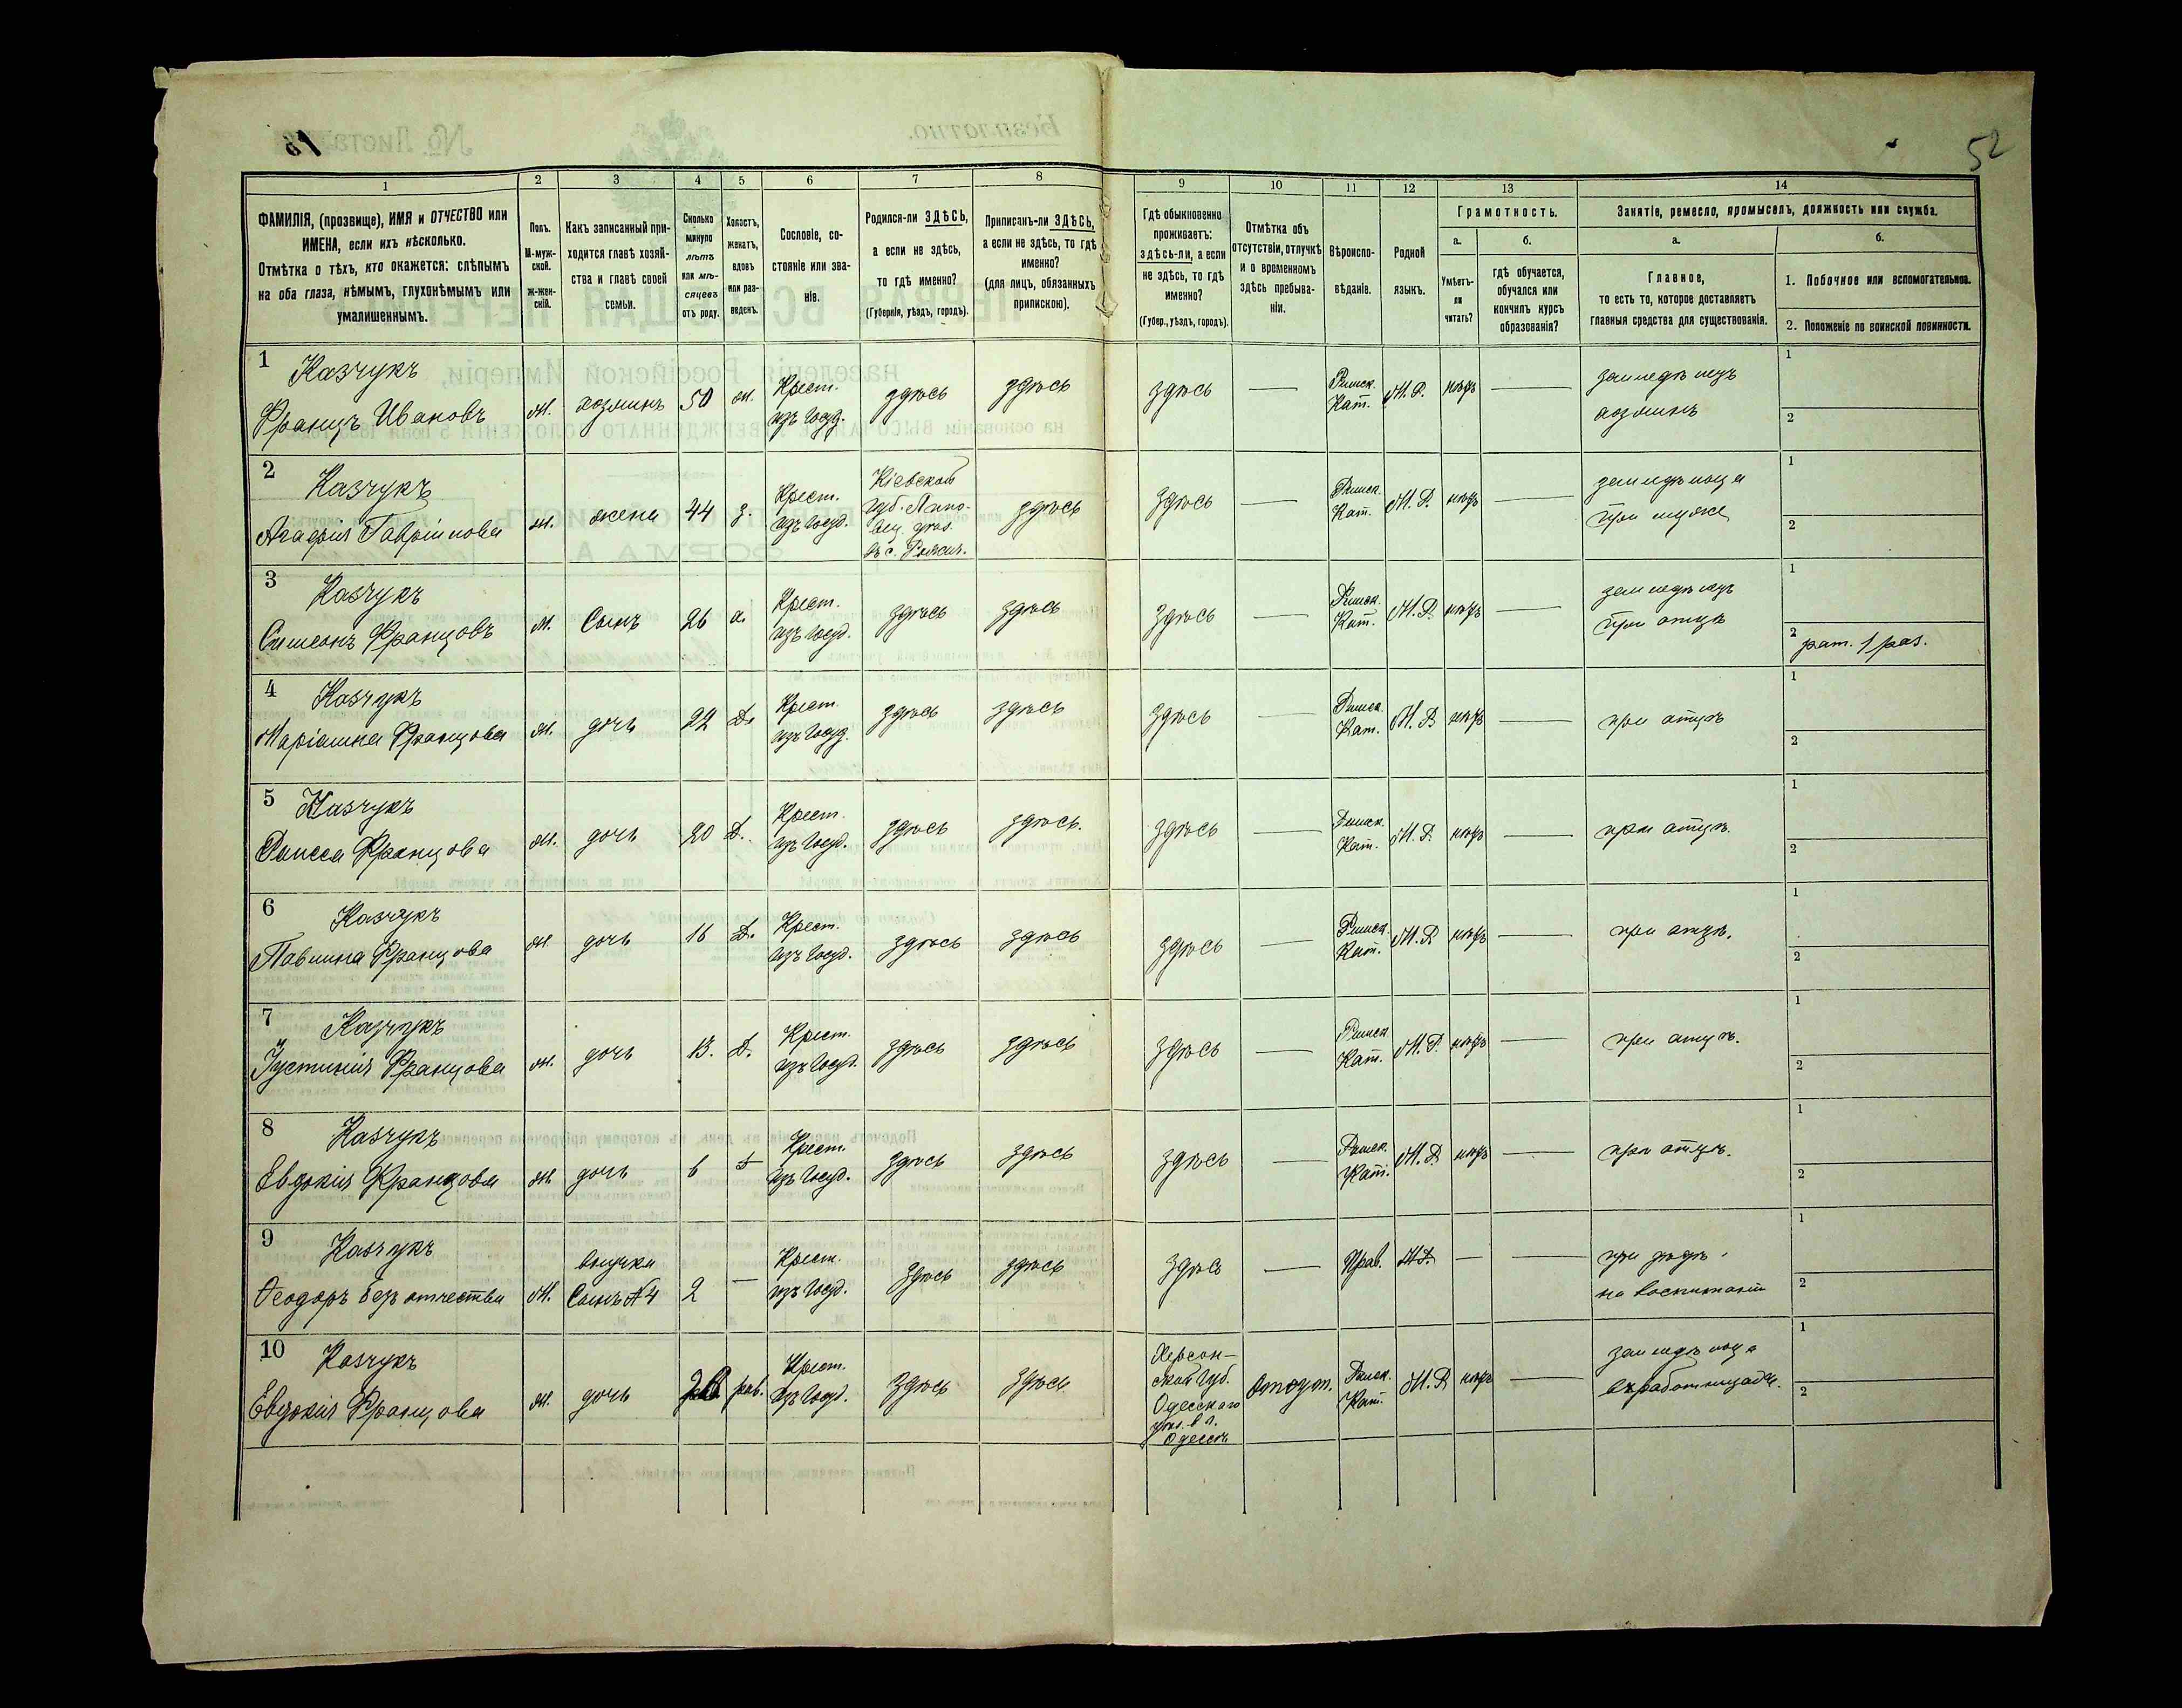 52
1 2 3 4 5 6 7 8 9 10 11 12 13 14
ФАМИЛІЯ, (прозвище), ИМЯ и ОТЧЕСТВО или
ИМЕНА, если ихъ нѣсколько.
Отмѣтка о тѣхъ, кто окажется: слѣпымъ
на оба глаза, нѣмымъ, глухонѣмымъ или
умалишеннымъ.
Полъ.
М-муж-
ской.
Ж-жен-
скій.
Какъ записанный при-
ходится главѣ хозяй-
ства и главѣ своей
семьи.
Сколько
минуло
лѣтъ
или мѣ-
сяцевъ
отъ роду.
Холостъ,
женатъ,
вдовъ
или раз-
веденъ.
Сословіе, со-
стояніе или зва-
ніе.
Родился-ли ЗДѢСЬ,
а если не здѣсь,
то гдѣ именно?
(Губернія, уѣздъ, городъ).
Приписанъ-ли ЗДѢСЬ,
а если не здѣсь, то гдѣ
именно?
(для лицъ, обязанныхъ
припискою).
Гдѣ обыкновенно
проживаетъ:
здѣсь-ли, а если
не здѣсь, то гдѣ
именно?
(Губер., уѣздъ, городъ).
Отмѣтка объ
отсутствіи, отлучкѣ
и о временномъ
здѣсь пребыва-
ніи.
Вѣроиспо-
вѣданіе.
Родной
языкъ.
Грамотность.
а.
Умѣетъ-
ли
читать?
б.
гдѣ обучается,
обучался или
кончилъ курсъ
образованія?
Занятіе, ремесло, промыселъ, должность или служба.
а.
Главное,
то есть то, которое доставляетъ
главныя средства для существованія.
б.
1. Побочное или вспомогательное.
2. Положеніе по воинской повинности.
1 Казчукъ
Францъ Ивановъ
м. хозяинъ 50 ж. Крест.
изъ Госуд. здѣсь здѣсь здѣсь — Римск.
Кат. М.Р. нѣтъ — землед
хозяинъ
1
2
2 Казчукъ
Агафія Гавріилова
ж. жена 44 з. Крест.
изъ Госуд. Кіевской
губ. Липо-
вец. уѣз.
въ с. здѣсь здѣсь — Римск.
Кат. М.Р. нѣтъ —
при мужѣ
1
2
3 Казчукъ
Симеонъ Францовъ
м. Сынъ 26 х. Крест.
изъ Госуд. здѣсь здѣсь здѣсь — Римск.
Кат. М.Р. нѣтъ —
при отцѣ
1
2 рат. 1 раз.
4 Казчукъ
Маріанна Францова
ж. дочь 22 Д. Крест.
изъ Госуд. здѣсь здѣсь здѣсь — Римск.
Кат. М.Р. нѣтъ — при отцѣ
1
2
5 Казчукъ
Францова
ж. дочь 20 Д. Крест.
изъ Госуд. здѣсь здѣсь. здѣсь — Римск.
Кат. М.Р. нѣтъ — при отцѣ.
1
2
6 Казчукъ
Павлина Францова
ж. дочь 16 Д. Крест.
изъ Госуд. здѣсь здѣсь здѣсь — Римск.
Кат. М.Р. нѣтъ — при отцѣ.
1
2
7 Казчукъ
Іустинія Францова
ж. дочь 13. Д. Крест.
изъ Госуд. здѣсь здѣсь здѣсь — Римск.
Кат. М.Р. нѣтъ — при отцѣ.
1
2
8 Казчукъ
Евдокія Францова
ж. дочь 6 Крест.
изъ Госуд. здѣсь здѣсь здѣсь — Римск.
Кат. М.Р. нѣтъ — при отцѣ.
1
2
9 Казчукъ
Ѳеодоръ безъ отчества
м. внучки
Сынъ №4 2 — Крест.
изъ Госуд. здѣсь здѣсь здѣсь — Прав. М.Р. — — при дѣдѣ
на воспитаніи
1
2
10 Казчукъ
Евдокія Францова
ж. дочь Крест.
изъ Госуд. здѣсь здѣсь Херсон-
ской губ.
Одесскаго
уѣз. в г.
Одессѣ Римск.
Кат. М.Р. нѣтъ —
1
2